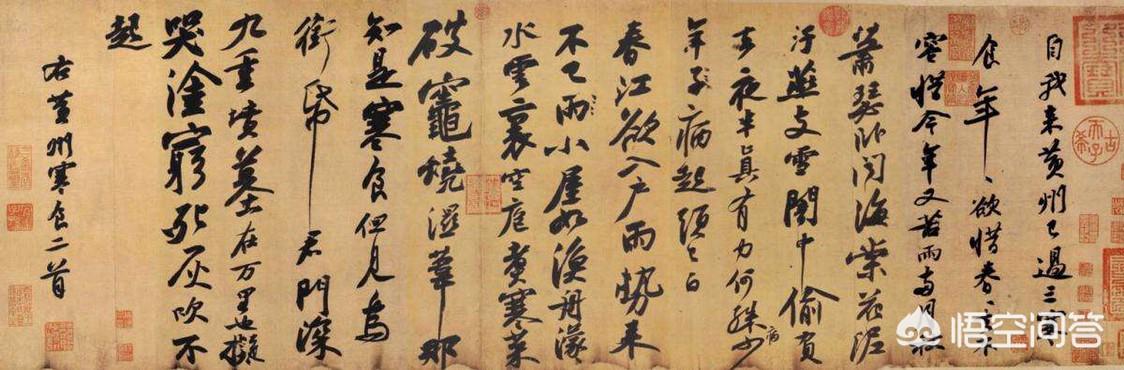 自我来黄州已過三寒
食年〻欲惜春〻去不
容惜今年又苦雨兩月秋
蕭瑟卧聞海棠花泥
汙燕支雪闇中偷負
去夜半真有力何殊少病
年子病起頭已白
春江欲入户雨勢来
不已雨小屋如漁舟濛〻
水雲裏空庖煮寒菜
破竈燒濕葦那
知是寒食但見烏
銜帋君門深
九重墳墓在万里也擬
哭塗窮死灰吹不
起
右黄州寒食二首
古希天子
悟空问答